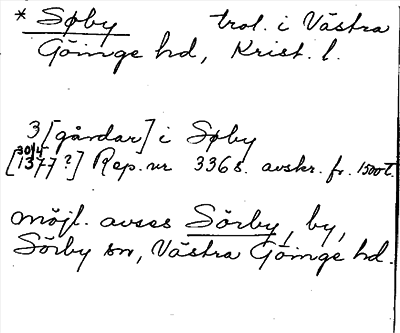 * Søby trol. i Västra
Göinge hd, Krist. l.
3 [gårdar] i Søby
30/4
[1377?] Rep. nr 3368. avskr. fr. 1500 t.
möjl. avses Sörby, by,
Sörby sn, Västra Göinge hd.